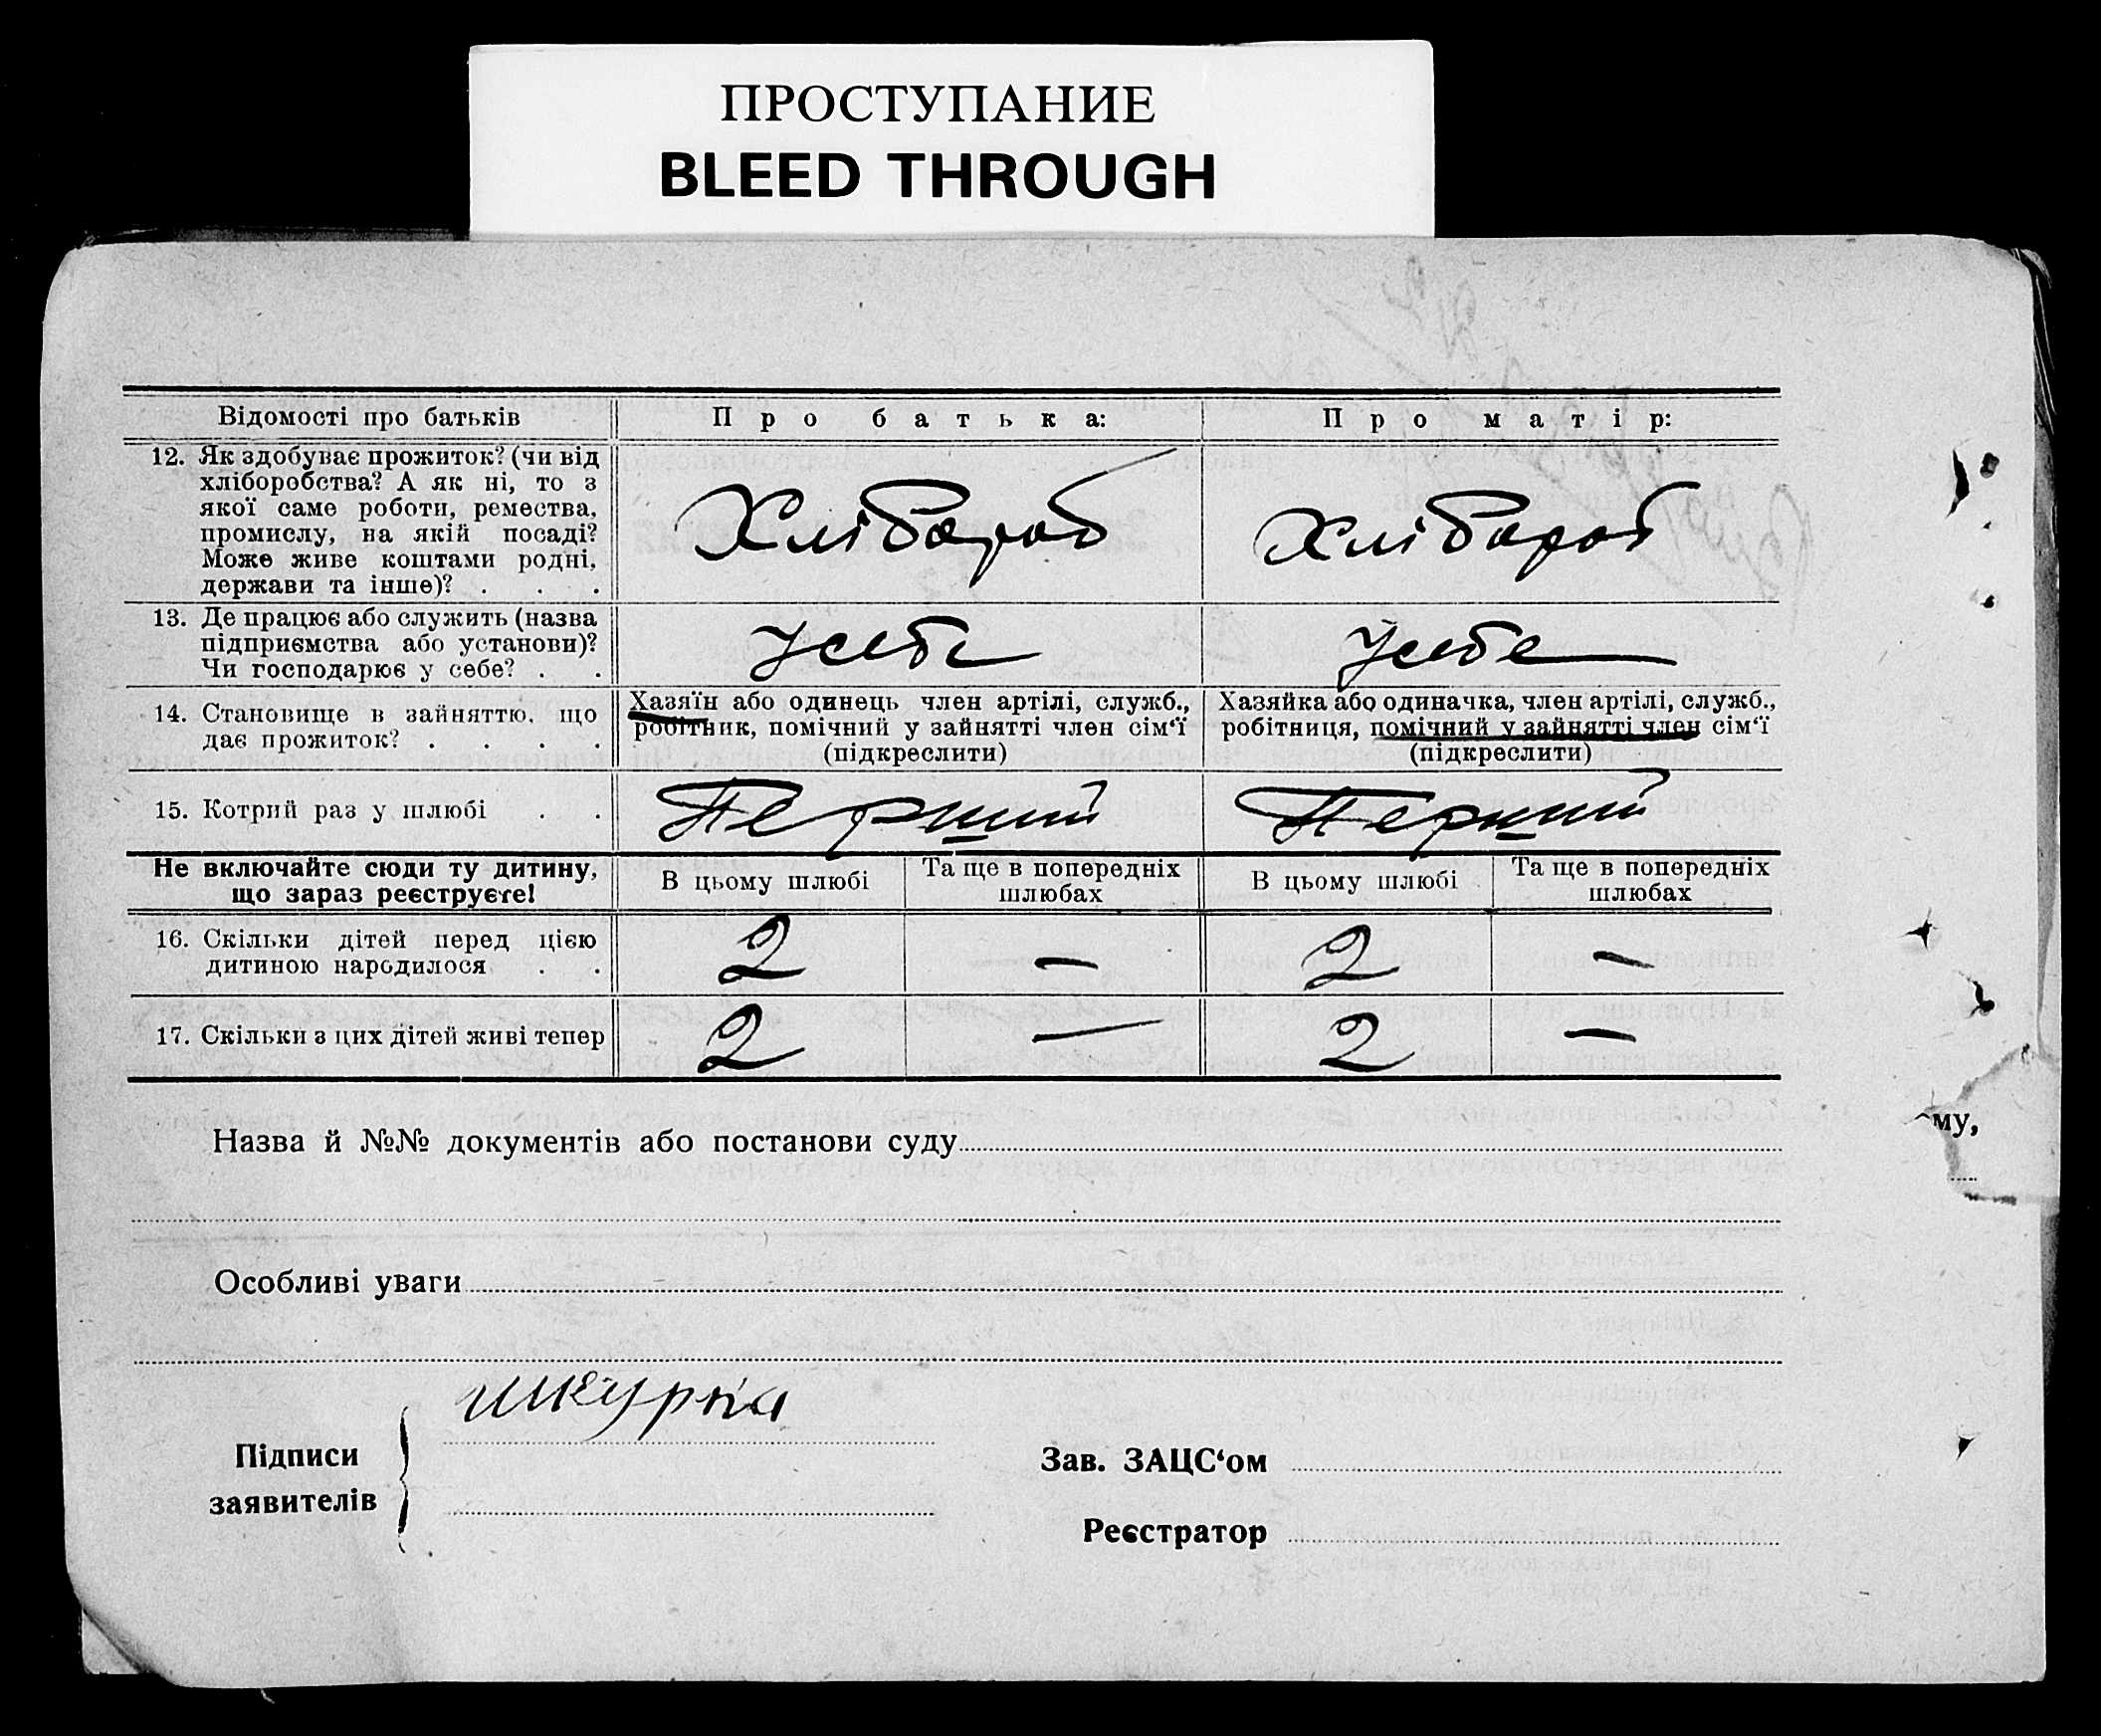 ПРОСТУПАНИЕ
BLEED THROUGH
Відомості про батьків Про батька: Про матір:
12. Як здобуває прожиток? (чи від
хліборобства? А як ні, то з
якої саме роботи, ремества,
промислу, на якій посаді?
Може живе коштами родні,
держави та інше)? . . .
Хлібороб Хлібороб
13. Де працює або служить (назва
підприємства або установи)?
Чи господарює у себе? . .
У себе У себе
14. Становище в зайняттю, що
дає прожиток? . . . .
Хазяїн або одинець член артілі, служб.,
робітник, помічний у зайнятті член сім‘ї
(підкреслити)
Хазяйка або одиначка, член артілі, служб.,
робітниця, помічний у зайнятті член сім‘ї
(підкреслити)
15. Котрий раз у шлюбі . . Перший Перший
Не включайте сюди ту дитину,
що зараз реєструєте!
В цьому шлюбі
Та ще в попередніх
шлюбах
В цьому шлюбі
Та ще в попередніх
шлюбах
16. Скільки дітей перед цією
дитиною народилося . .
2 — 2 —
17. Скільки з цих дітей живі тепер 2 — 2 —
му,
Назва й №№ документів або постанови суду
Особливі уваги
Підписи
заявителів
Зав. ЗАЦС‘ом
Реєстратор